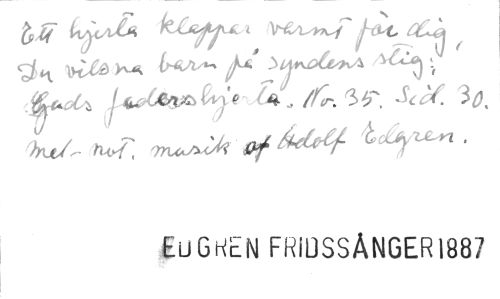 Ett hjerta klappar varmt för dig,
Du vilsna barn på syndens stig;
Guds fadershjerta. No. 35. Sid. 30.
Mel-not. musik af Adolf Edgren.
EDGREN FRIDSSÅNGER 1887